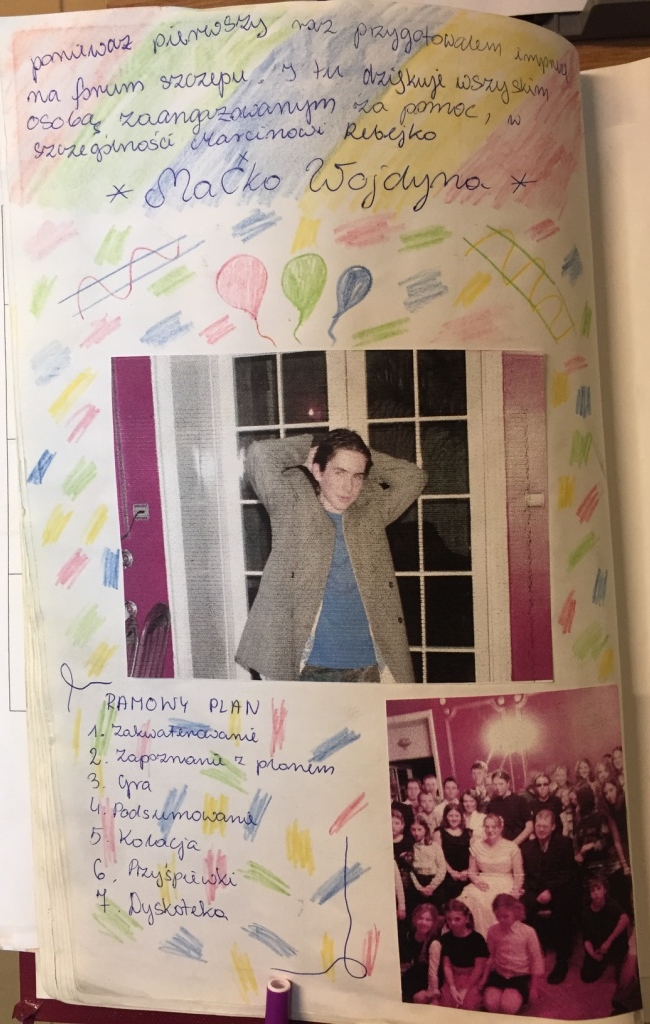 ponieważ pierwszy raz przygotowałem imprezę
na forum szczepu. I tu dziękuję wszystkim
osobą zaangażowanym za pomoc, w
szczególności Marcinowi Rebejko
* Maćko Wojdyna *
RAMOWY PLAN
1. Zakwaterowanie
2. Zapoznanie z planem
3. Gra
4. Podsumowanie
5. Kolacja
6. Przyśpiewki
7. Dyskoteka